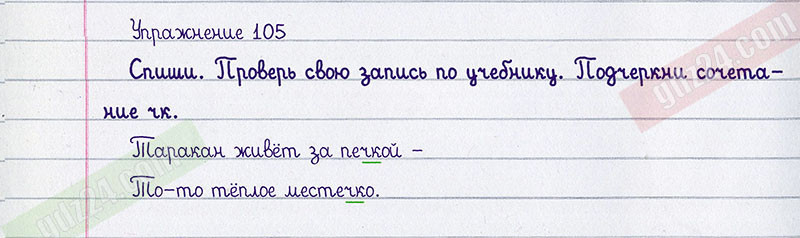 Упражнение 105
Спиши. Проверь свою запись по учебнику. Подчеркни сочета-
ние чк.
Таракан живёт за печкой –
То-то тёплое местечко.
gdz24.com
gdz24.com